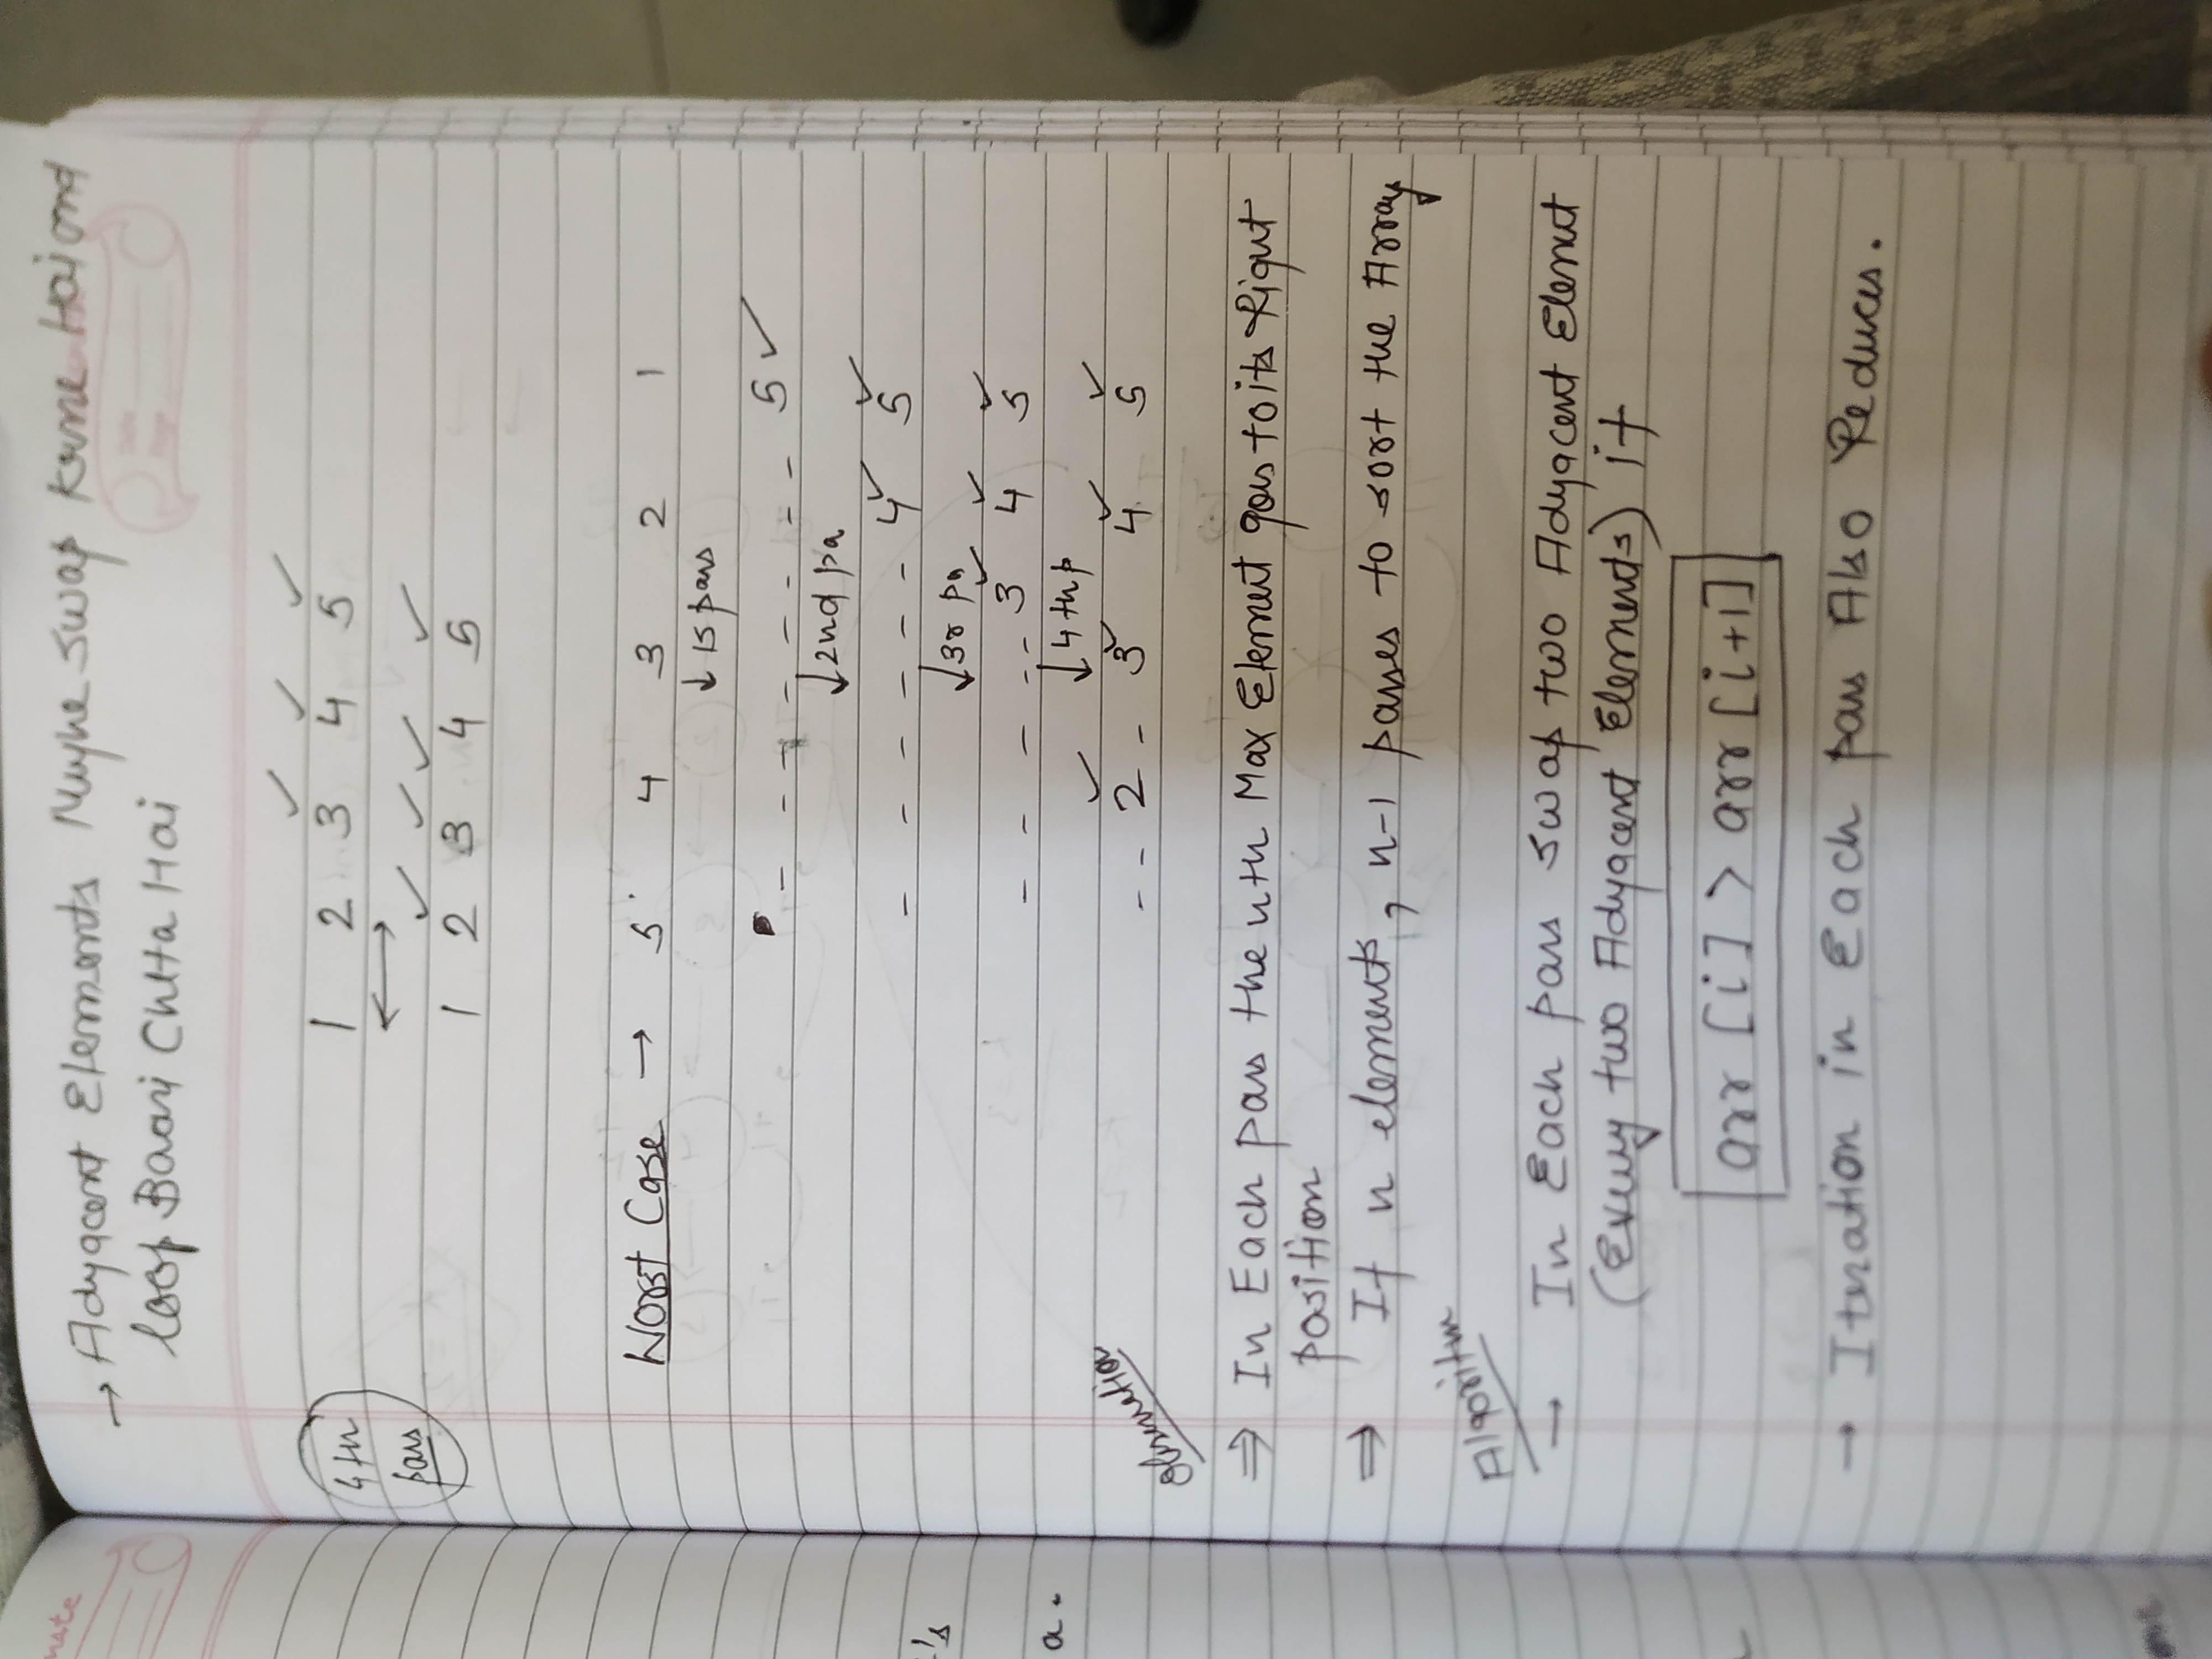 → Adyacent Elements Mujhe Swap Karne Hai and
loop Baari Chlta Hai
4th
pass
1 2 3 4 5
1 2 3 4 5
Worst Case → 5 4 3 2 1
↓ 1s pass
5 ✓
↓ 2nd pa
4 5
↓ 3r pa
3 4 5
↓ 4th p
2 3 4 5
Observation
⇒ In Each pass the nth Max Element goes to its Right
position
⇒ If n elements, n-1 passes to sort the Array
Algoritm
→ In Each pass swap two Adyacent Elemnt
(Every two Adyacent Elements) if
arr [i] > arr [i+1]
→ Iteration in Each pass Also Reduces.